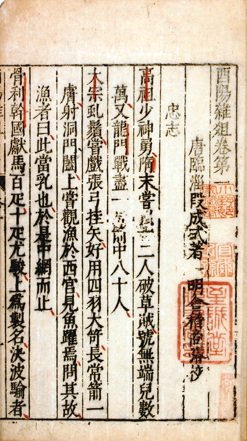 酉陽雜俎卷第
唐臨淄段成式著 明
忠志
高祖少神勇隋末嘗二人破草賊號無端兒數
萬又龍門戰盡一箭中八十人
太宗虬鬚嘗戲張弓挂矢好用四羽大笴長常箭一
膚射洞門闔上嘗觀漁於西宮見魚躍焉問其故
漁者曰此當乳也於是中網而止
骨利幹國獻馬百疋十疋尤駿上爲製名決波騟者